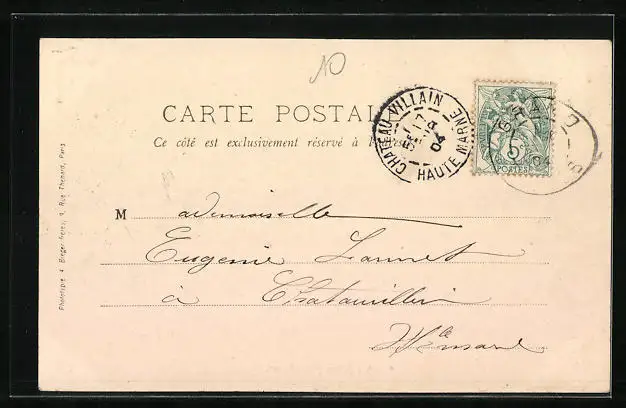 CARTE POSTALE
Ce côté est exclusivement réservé à l'adresse
CHATEAU-VILLAIN
17
04
HAUTE MARNE
5c
POSTES
04
Mademoiselle
Eugenie
à Chatauvillin
Hte marne
Phototypie A. Bergeret frères, 9, Rue Thénard, Paris